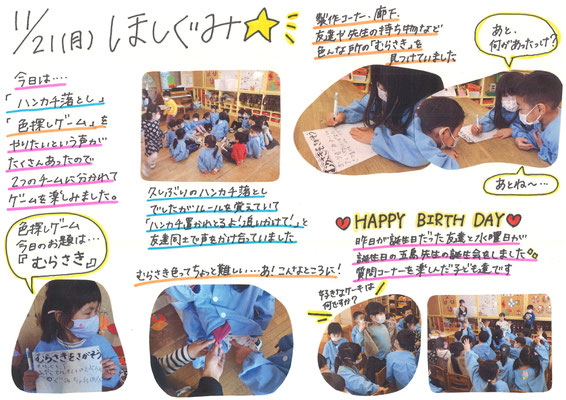 11/21(月) ほしぐみ
今日は‥‥
「ハンカチ落とし」
「色探しゲーム」を
やりたいという声が
たくさんあったので
2つのチームに分かれて
ゲームを楽しみました。
色探しゲーム
今日のお題は…
『むらさき』
むらさきをさがそう
久しぶりのハンカチ落とし
でしたがルールを覚えていて
「ハンカチ置かれとるよ!追いかけて!」と
友達同士で声をかけ合っていました
むらさき色ってちょっと難しい‥‥あ!こんなところに!
製作コーナー、廊下、
友達や先生の持ち物など
色んな所の「むらさき」を
見つけていました
あと、
何があったっけ?
あとね〜…
HAPPY BIRTH DAY
昨日が誕生日だった友達と水曜日が
誕生日の五島先生の誕生会をしました。
質問コーナーを楽しんだ子ども達です
好きなケーキは
何ですか?